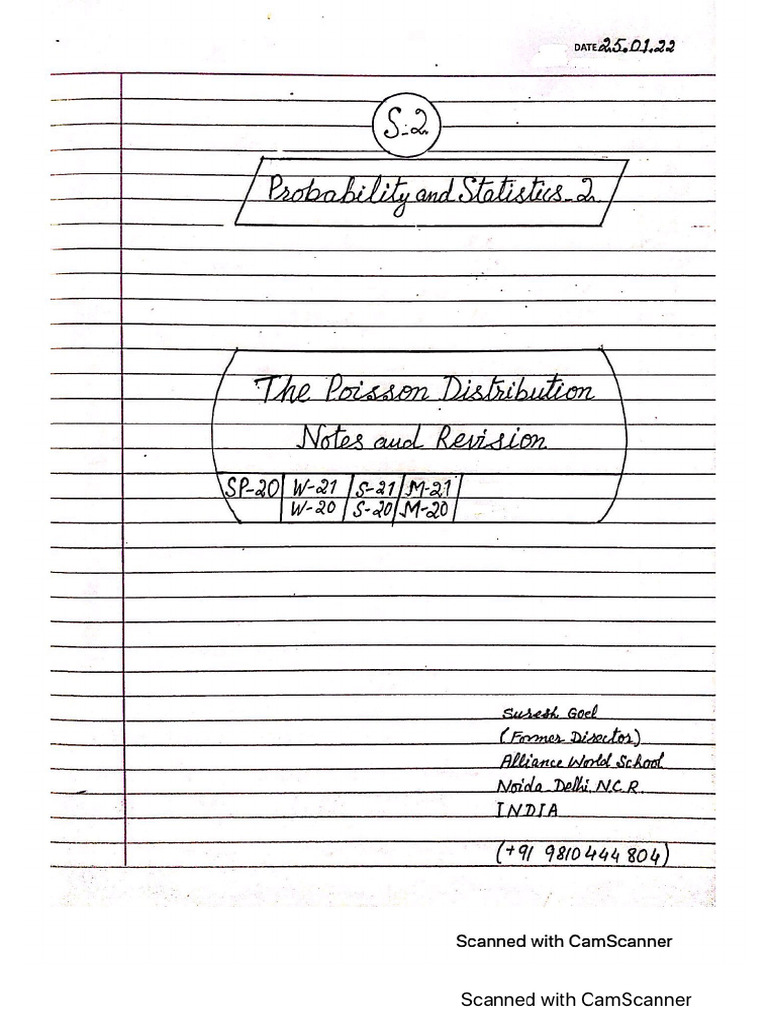 DATE 25.01.22
S-2
Probability and Statistics-2
The Poisson Distribution
Notes and Revision
SP-20 W-21 S-21 M-21
W-20 S-20 M-20
Suresh Goel
(Former Director)
Alliance World School
Noida Delhi N.C.R.
INDIA
(+91 9810444804)
Scanned with CamScanner
Scanned with CamScanner